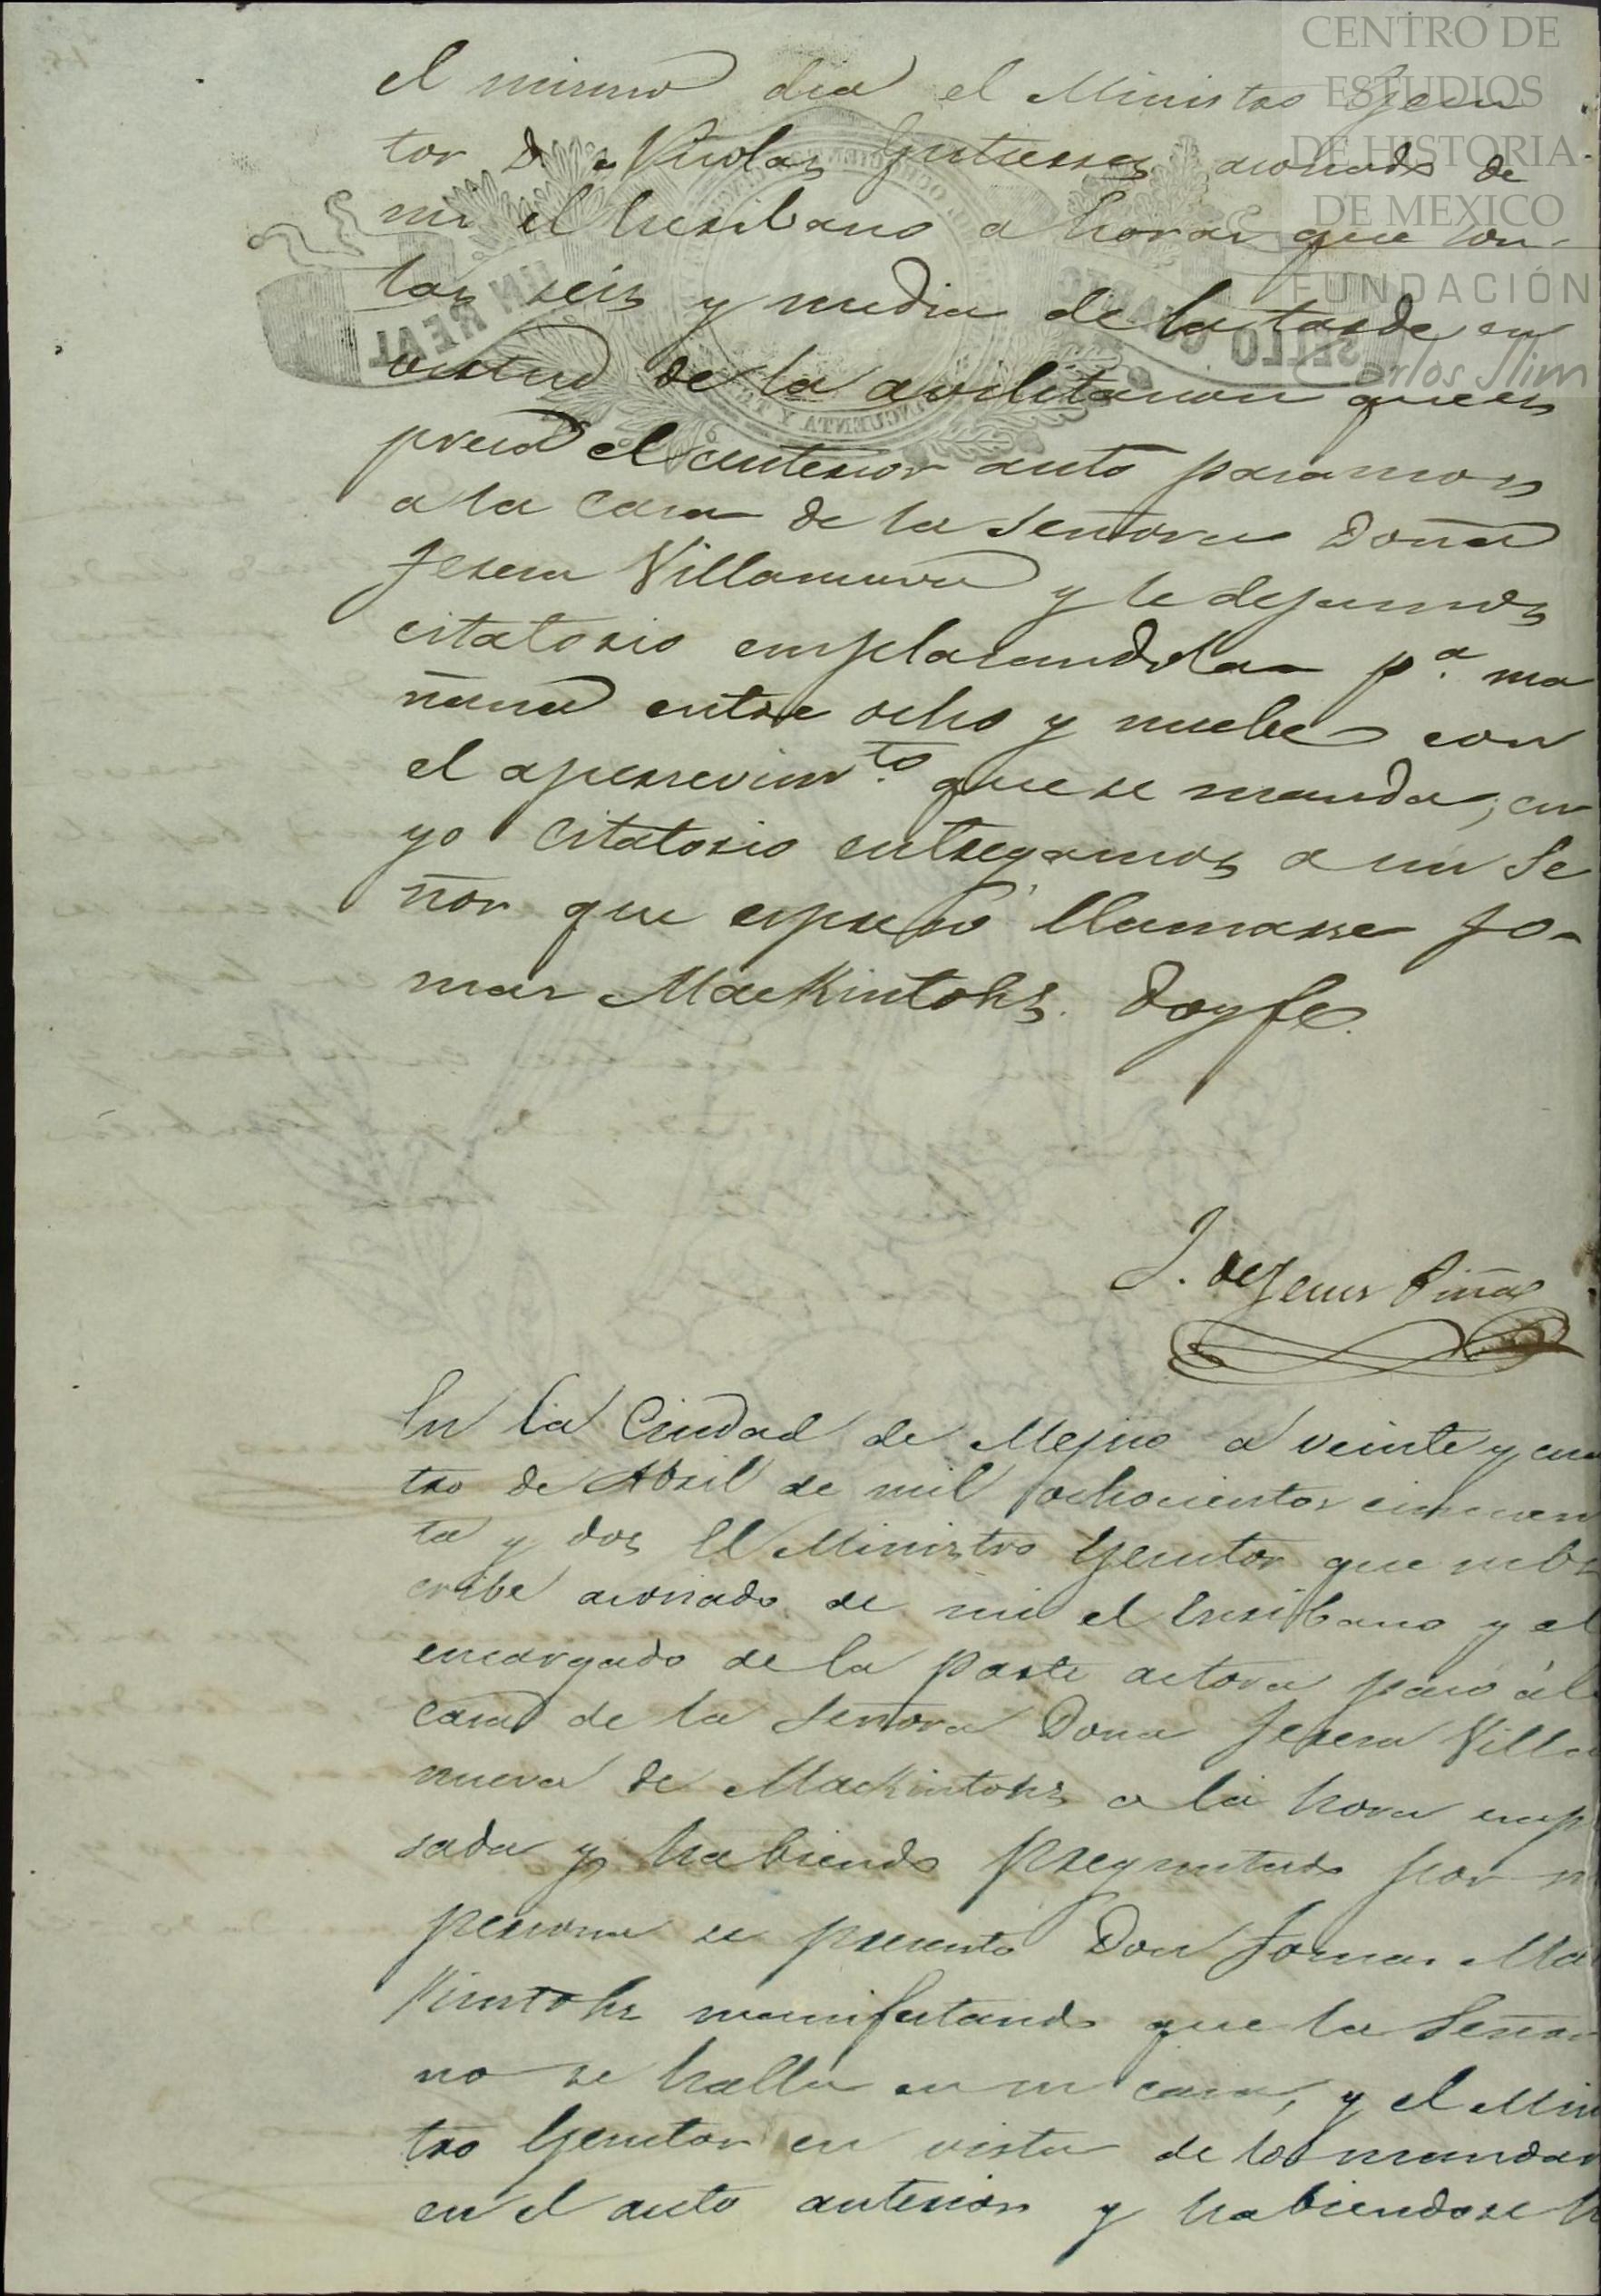 CENTRO DE
ESTUDIOS
DE HISTORIA
DE MEXICO
FUNDACIÓN
Carlos Slim
SELLO
UN REAL
el mismo dia el Ministro Ejecu
tor D. Nicolas Gutierres asociado de
mi el Escribano a horas que son
las seis y media de la tarde en
virtud de la avilitacion que es
presa el anterior auto pasamos
a la Casa de la Señora Doña
Teresa Villanueva y le dejamos
citatorio emplasandola pª ma
ñana entre ocho y nuebe con
el apersevimto que se manda, cu
yo Citatorio entregamos a un Se
ñor que espresó llamarse To-
mas Mackintohs. Doy fe.
J. de Jesus Piña
En la Ciudad de Mejico a veinte y cua
tro de Abril de mil ochocientos cincuen
ta y dos El Ministro Ejecutor que subs
cribe asociado de mi el Escribano y el
encargado de la parte actora pasó á l
casa de la Señora Dona Teresa Villa
nueva de Mackintohs a la hora emp
sada y habiendo preguntado por
persona se presento Don Tomas Ma
kintohs manifestando que la Señor
no se halla en su casa, y el Min
tro Ejecutor en vista de lo mandad
en el auto anterior y habiendose